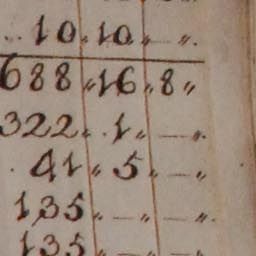 10 „ 10 „ — „
688 „ 16 „ 8 „
322 „ 1 „ — „
41 „ 5 „ — „
135 „ — „ — „
135 „ — „ — „